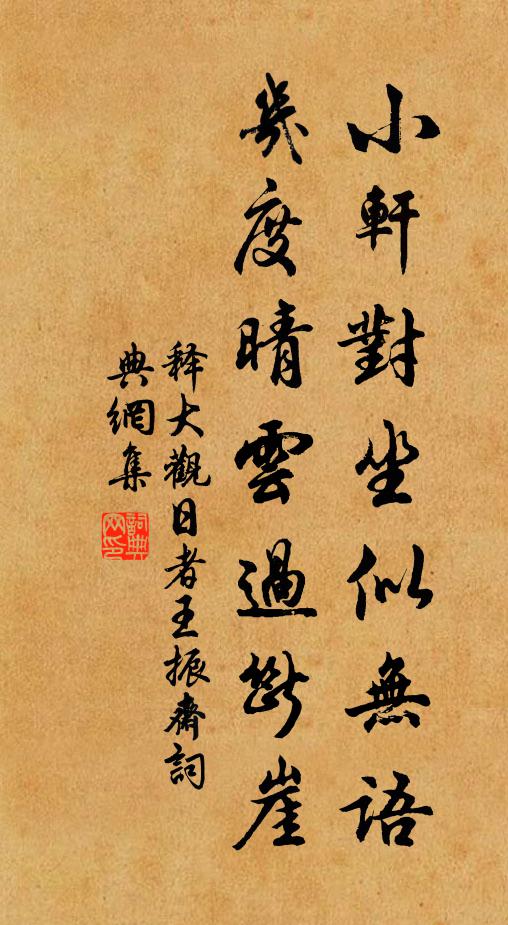 小軒對坐似無語
幾度晴雲過斷崖
释大觀日者王振齋詞
典網集
詞典
网印